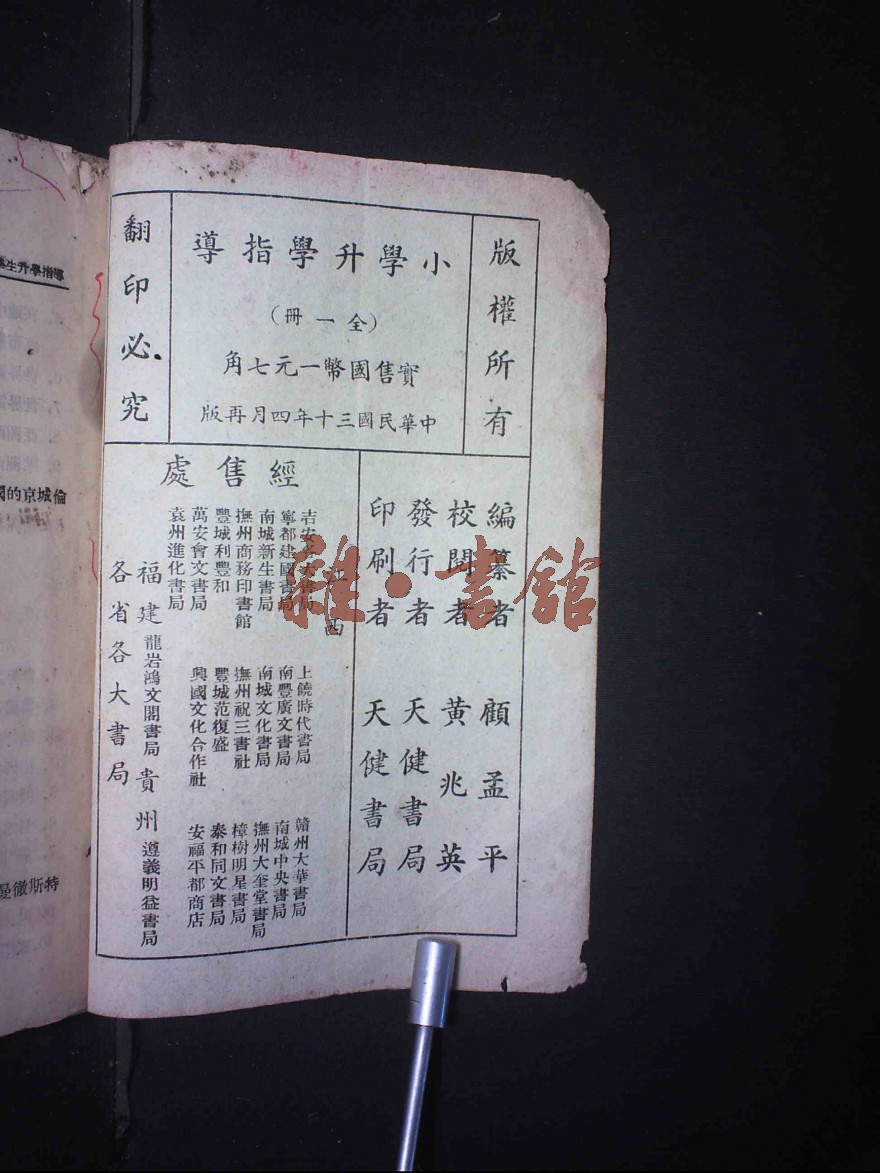 版權所有
小學升學指導
(全一冊)
實售國幣一元七角
中華民國三十年四月再版
翻印必究
編纂者 顧孟平
校閱者 黃兆英
發行者 天健書局
印刷者 天健書局
經售處
江西
吉安 大書局 上饒時代書局 贛州大華書局
寧都建國書局 南豐廣文書局 南城中央書局
南城新生書局 南城文化書局 撫州大奎堂書局
撫州商務印書館 撫州祝三書社 樟樹明星書局
豐城利豐和 豐城范復盛 泰和同文書局
萬安會文書局 興國文化合作社 安福平都商店
袁州進化書局
福建龍岩鴻文閣書局 貴州遵義明益書局
各省各大書局
雜·書館
生升學指導
的京城倫
曼徹斯特